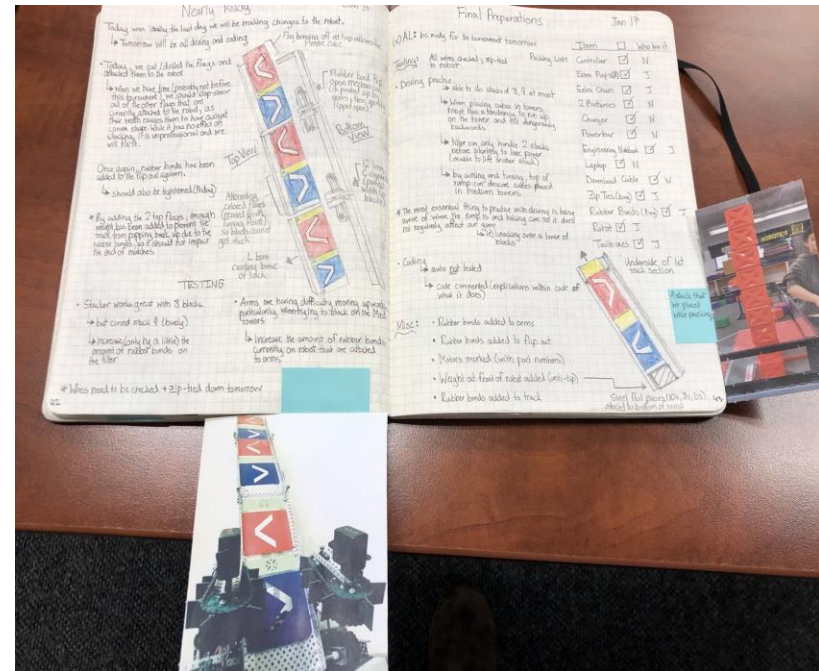 Nearly Ready
Today was ideally the last day we will be making changes to the robot.
↳ Tomorrow will be all driving and coding
• Today, we cut/drilled the flaps and
attached them to the robot
↳ when we have time (probably not before
this tournament), we should
all of the other flaps that are
currently attached to the robot, as
their
while it has no effect on
stacking, it is unprofessional and we
will fix it.
Once again, rubber bands have been
added to the flip out system.
↳ should also be tightened (today)
* By adding the 2 top flaps, enough
weight has been added to prevent the
track from popping back up due to the
rubber bands, so it should not impact
the end of matches
Top View
Bottom
View
Rubber band flip
open mechanism
Alternating
colored flaps
so blocks cannot
get stuck
L bars
creating base
of track
TESTING
• Stacker works great with 8 blocks
↳ but cannot stack 9 (barely)
↳ increase (only by a little) the
amount of rubber bands on
the tilter
• Arms are having difficulty moving upwards
particularly when trying to stack on the Med
towers
↳ Increase the amount of rubber bands
currently on robot that are attached
to arms
* Wires need to be checked + zip-tied down tomorrow
22
Final Preparations
Jan 17
GOAL: be ready for the tournament tomorrow
Testing: All wires checked, zip-tied
to robot
• Driving practice
↳ able to do stacks of 8, 9 at most
↳ When placing cubes in towers,
robot has a tendency to run up
on the tower and tilt dangerously
backwards
↳ tilter can only handle 2 stacks
before starting to lose power
(unable to lift another stack)
↳ by aiming and turning, top of
ramp can descore cubes placed
in medium towers
* The most essential thing to practice with driving is being
aware of where the ramp is and making sure it does
not negatively affect our game
↳ ex) knocking over a tower of
blocks
• Coding
↳ auto not tested
↳ code commented (explications within code of
what it does)
Misc:
• Rubber bands added to arms
• Rubber bands added to flip out
• Motors marked (with port numbers)
• Weight at front of robot added (anti-tip)
• Rubber bands added to track
Packing List:
Item Who has it
Controller N
Extra J
Extra Chain J
2 Batteries N
Charger N
Powerbar N
Engineering Notebook J
Laptop N
Download Cable N
Zip Ties (bag) J
Rubber Bands (bag) J
Robot J
Toolboxes J
Underside of 1st
track section
A stack that
we placed
while practicing
Steel flat pieces
attached to bottom of ramp
ROBOTICS